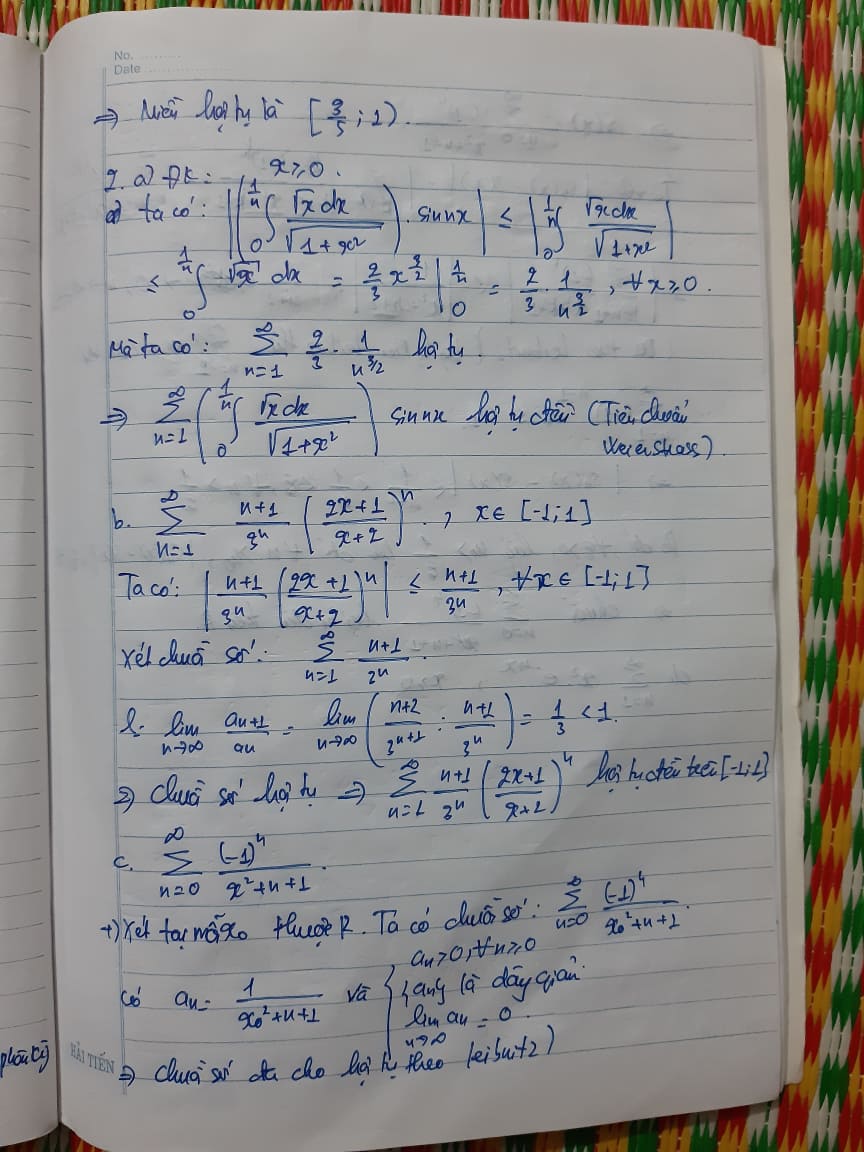 No.
Date
⇒ Miền hội tụ là [3/5 ; 1).
2. a) ĐK: x ≥ 0.
a) ta có: |(∫_0^{1/n} √x dx / √(1+x²)) . sin nx| ≤ |∫_0^{1/n} √x dx / √(1+x²)|
≤ ∫_0^{1/n} √x dx = 2/3 x^{3/2} |_0^{1/n} = 2/3 . 1/n^{3/2} , ∀x ≥ 0.
Mà ta có: ∑_{n=1}^∞ 2/3 . 1/n^{3/2} hội tụ.
⇒ ∑_{n=1}^∞ (∫_0^{1/n} √x dx / √(1+x²)) sin nx hội tụ đều (Tiêu chuẩn
Weierstrass).
b. ∑_{n=1}^∞ (n+1)/3^n ((2x+1)/(x+2))^n , x ∈ [-1;1]
Ta có: |(n+1)/3^n ((2x+1)/(x+2))^n| ≤ (n+1)/3^n , ∀x ∈ [-1;1]
Xét chuỗi số: ∑_{n=1}^∞ (n+1)/3^n .
lim_{n→∞} a_{n+1}/a_n = lim_{n→∞} ((n+2)/3^{n+1} : (n+1)/3^n) = 1/3 < 1.
⇒ chuỗi số hội tụ ⇒ ∑_{n=1}^∞ (n+1)/3^n ((2x+1)/(x+2))^n hội tụ đều trên [-1;1]
c. ∑_{n=0}^∞ (-1)^n / (x²+n+1) .
+) Xét tại mỗi x₀ thuộc R. Ta có chuỗi số: ∑_{n=0}^∞ (-1)^n / (x₀²+n+1) .
a_n > 0, ∀n ≥ 0
Có a_n = 1/(x₀²+n+1) và { {a_n} là dãy giảm.
lim_{n→∞} a_n = 0.
⇒ chuỗi số đã cho hội tụ theo Leibnitz)
HẢI TIẾN
phân kỳ